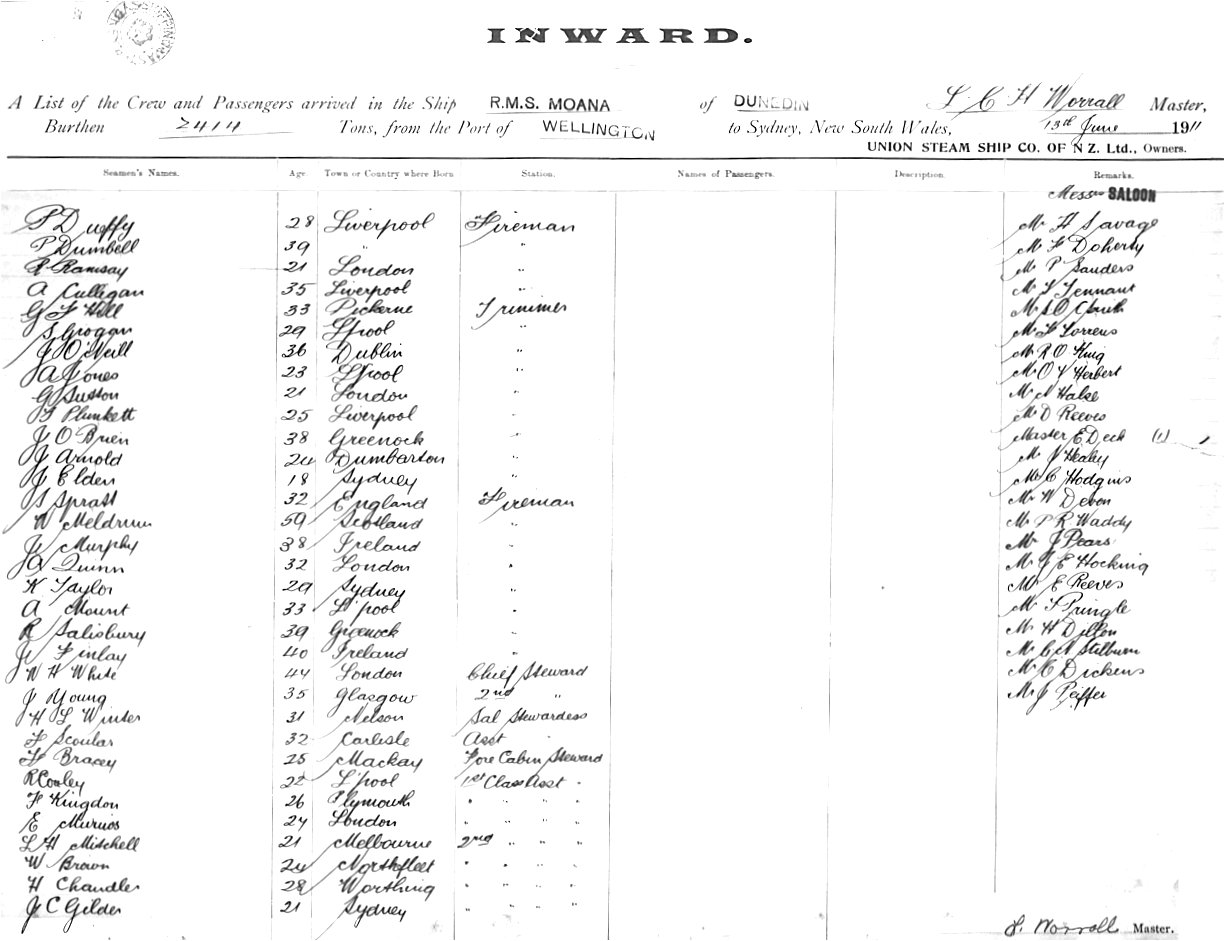 INWARD.
A List of the Crew and Passengers arrived in the Ship R.M.S. MOANA of DUNEDIN L C H Worrall Master,
Burthen 2414 Tons, from the Port of WELLINGTON to Sydney, New South Wales, 13th June 1911
UNION STEAM SHIP CO. OF N Z. Ltd., Owners.
Seamen's Names. Age Town or Country where Born Station. Names of Passengers. Description. Remarks.
Messrs SALOON
P Duffy 28 Liverpool Fireman Mr H Savage
P Dumbell 39 " " Mr F Doherty
R Ramsay 21 London " Mr P Sanders
A Culligan 35 Liverpool " Mr T Tennant
G F Hill 33 Trimmer Mr S O
S Grogan 29 L'pool " Mr F Lorrens
J O'Neill 36 Dublin " Mr R O King
A Jones 23 L'pool " Mr O V Herbert
G Sutton 21 London " Mr N Halse
T Plunkett 25 Liverpool " Mr D Reeves
J O Brien 38 Greenock " Master E Deck (1)
J Arnold 24 Dumbarton " Mr J Healey
J Elden 18 Sydney " Mr C Hodgins
S Spratt 32 England Fireman Mr W Devon
W Meldrum 59 Scotland " Mr P R Waddy
J Murphy 38 Ireland " Mr J Pears
A Quinn 32 London " Mr J E Hocking
K Taylor 29 Sydney " Mr E Reeves
A Mount 33 L'pool " Mr T Pringle
R Salisbury 39 Greenock " Mr H Dillon
J Finlay 40 Ireland " Mr C A Stilburn
W H White 44 London Chief Steward Mr C Dickens
J Young 35 Glasgow 2nd " Mr J Peiffer
H L Winter 31 Nelson Sal Stewardess
F Scoular 32 Carlisle Asst "
F Bracey 25 Mackay Fore Cabin Steward
R Conley 22 L'pool 1st Class Asst "
F Kingdon 26 Plymouth " " " "
E 24 London " " " "
L H Mitchell 21 Melbourne 2nd " " "
W Brown 24 Northfleet " " " "
H Chandler 28 Worthing " " " "
J C Gilder 21 Sydney " " " "
Worrall Master.